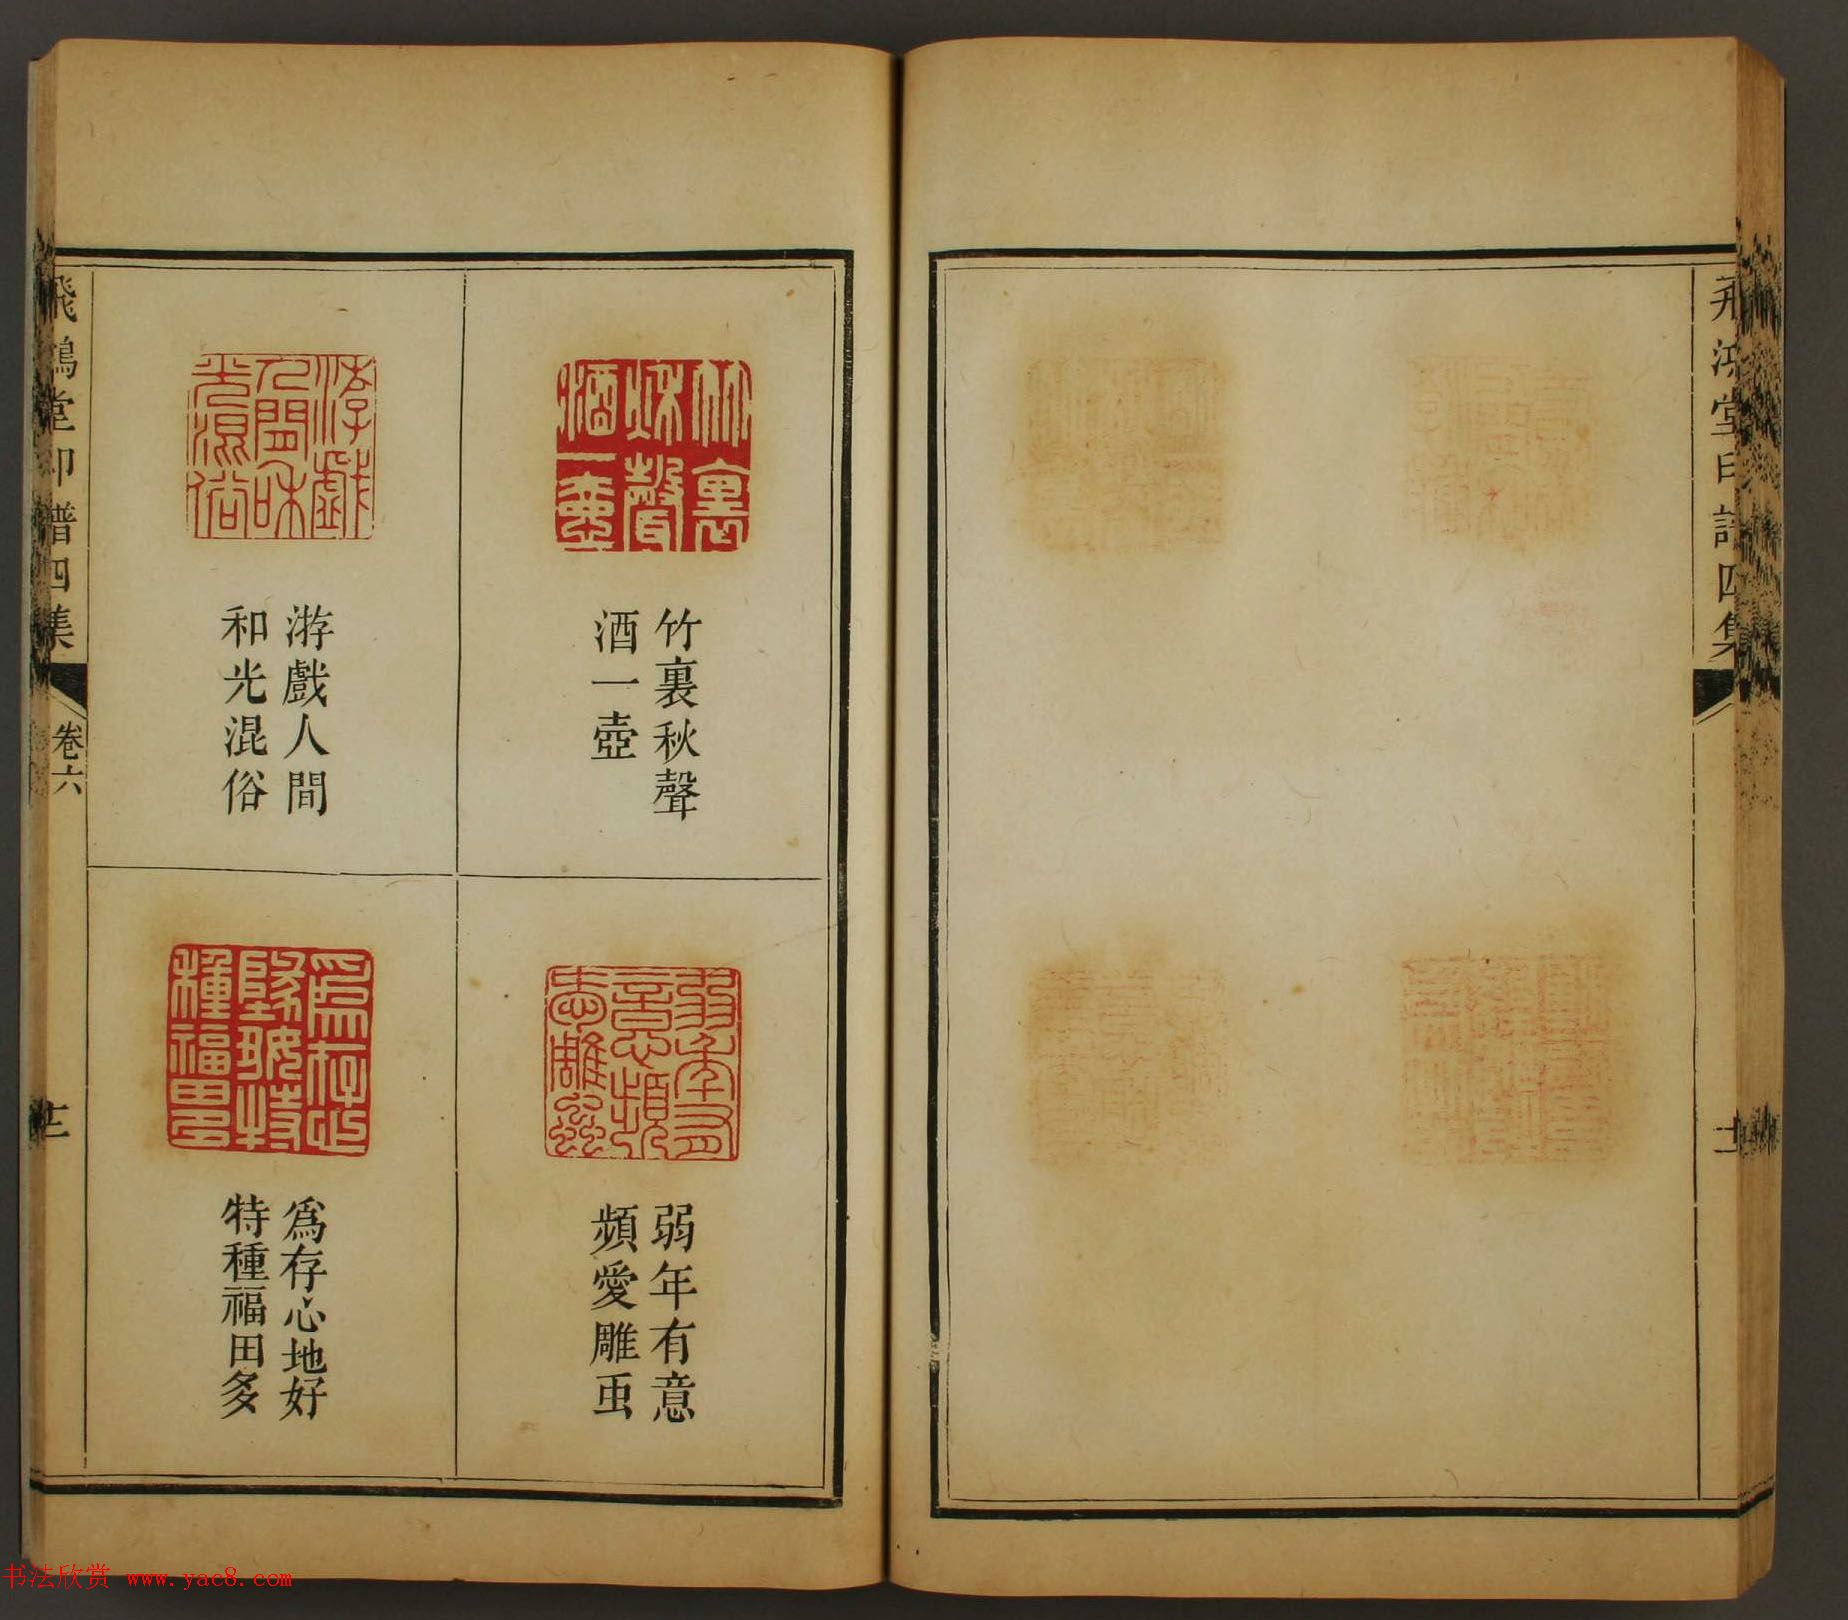 飛鴻堂印譜四集
十二
竹裏秋聲
酒一壺
游戲人間
和光混俗
弱年有意
頻愛雕虫
為存心地好
特種福田多
飛鴻堂印譜四集
卷六
十三
书法欣赏 www.yac8.com